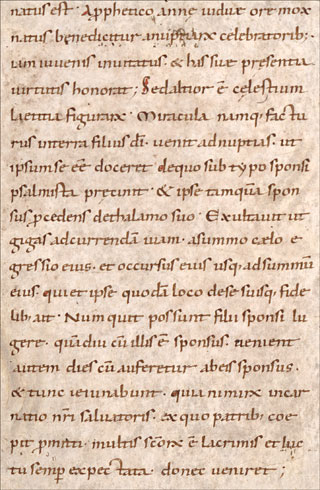 natus est. Apphetico anne viduæ ore mox
natus, benedicitur a nuptiarū celebratorib;.
iam iuvenis invitatus, & has suæ præsentia
virtutis honorat; Sed altior ē celestium
lætitia figurarū. Miracula namq, factu
rus in terra filius dī. venit ad nuptias. ut
ipsum se eē doceret de quo sub typo sponsi
psalmista precinit. & ipse tamquā spon
sus pcedens de thalamo suo. Exultavit ut
gigas ad currendā viam. a summo cælo e
gressio eius. et occursus eius usq, ad summū
eius. qui et ipse quodā loco de se suisq, fide
lib, ait. Numquit possunt filii sponsi lu
gere. quā diu cū illis ē sponsus. venient
autem dies cū auferetur ab eis sponsus.
& tunc ieiunabunt. quia nimirū incar
natio nr̄i salvatoris. ex quo patrib, coe
pit pmitti. multis scōrū ē lacrimis et luc
tu semp expectata. donec veniret;